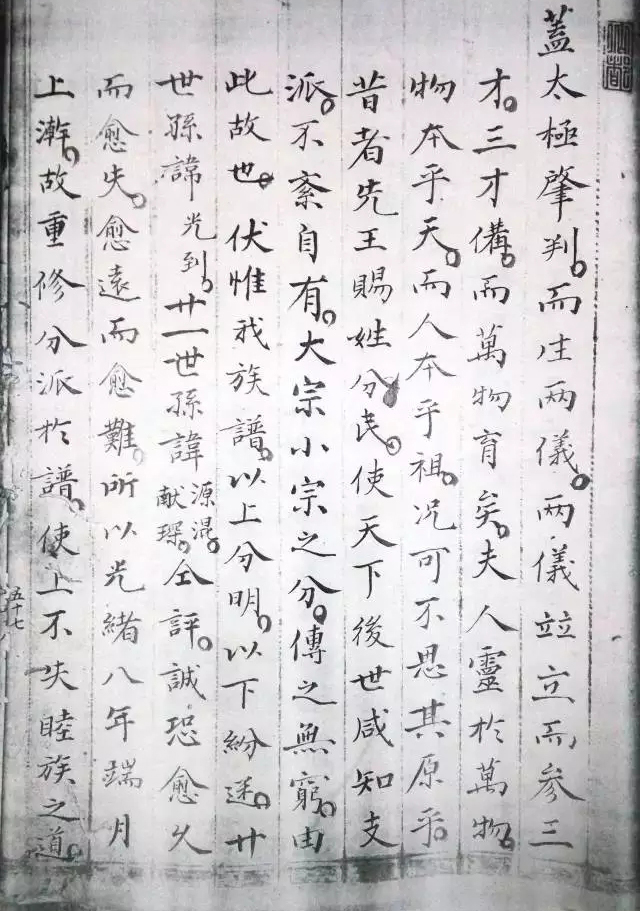 蓋太極肇判。而生两儀。两儀竝立而参三
才。三才備。而萬物育矣。夫人靈於萬物。
物本乎天。而人本乎祖。况可不思其原乎。
昔者先王賜姓分民。使天下後世咸知支
派。不紊自有。大宗小宗之分。傳之無窮。由
此故也。伏惟我族譜。以上分明。以下紛迷。廿
世孫諱光到。廿一世孫諱源混。献琛。仝評。誠恐愈久
而愈失。愈遠而愈難。所以光緒八年端月
上澣。故重修分派於譜。使上不失睦族之道。
五十七